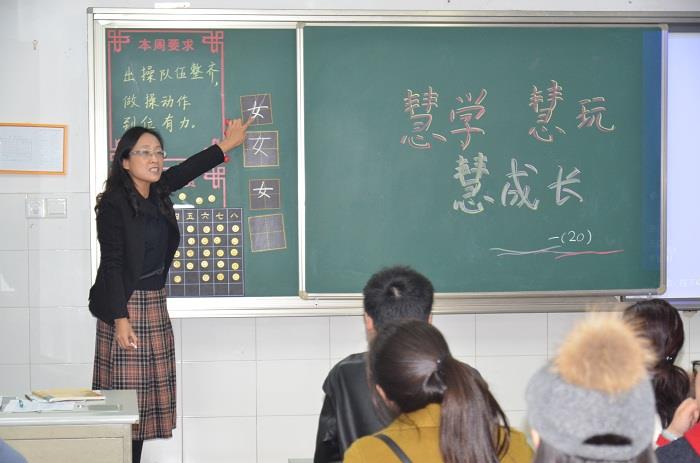 本周要求
出操队伍整齐,
做操动作
到位有力。
女
女
女
五 六 七 八
慧学 慧玩
慧成长
一(20)